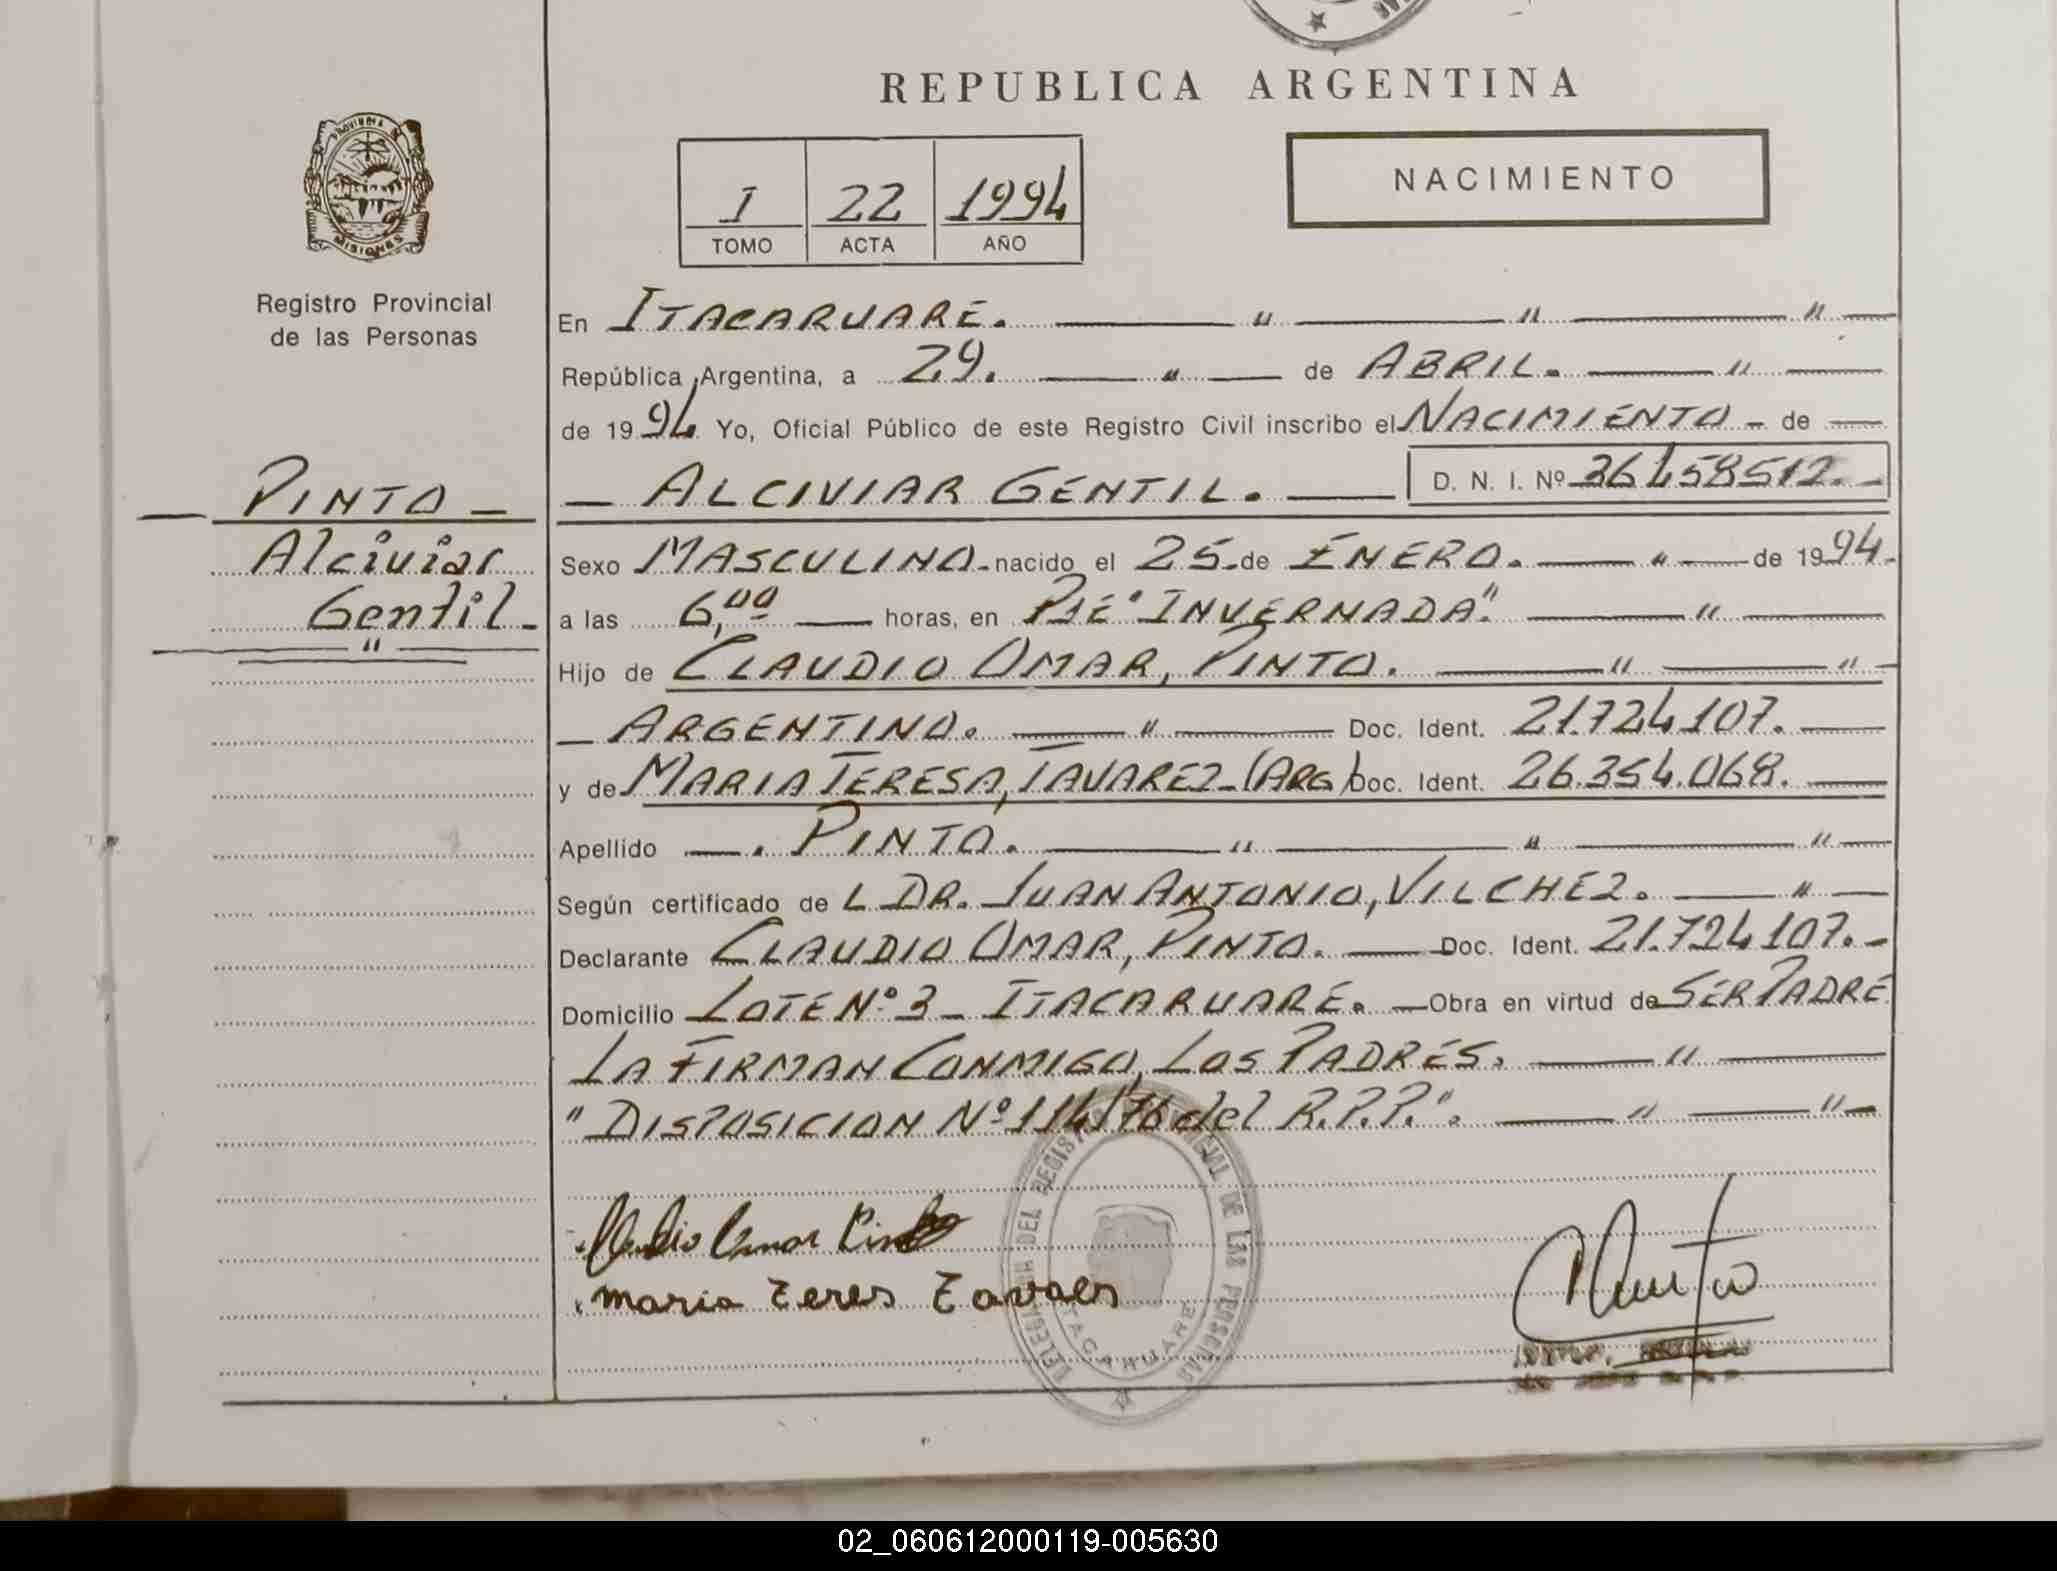 REPUBLICA ARGENTINA
PROVINCIA DE
MISIONES
Registro Provincial
de las Personas
I 22 1994
TOMO ACTA AÑO
NACIMIENTO
En ITACARUARE. " " "
República Argentina, a 29. " de ABRIL. "
de 1994 Yo, Oficial Público de este Registro Civil inscribo el NACIMIENTO - de
PINTO - ALCIVIAR GENTIL. D. N. I. Nº 36458512.-
Alciviar
Gentil -
"
Sexo MASCULINO - nacido el 25 - de ENERO. " de 1994.
a las 6,00 horas, en PJE "INVERNADA". "
Hijo de CLAUDIO OMAR, PINTO. " "
ARGENTINO. " Doc. Ident. 21.724.107.
y de MARIA TERESA, TAVAREZ - (ARG) Doc. Ident. 26.354.068.
Apellido . PINTO. " " "
Según certificado de L DR. JUAN ANTONIO, VILCHEZ. "
Declarante CLAUDIO OMAR, PINTO. Doc. Ident. 21.724.107.-
Domicilio LOTE Nº 3 - ITACARUARE. Obra en virtud de SER PADRE
LA FIRMAN CONMIGO, LOS PADRES. "
"DISPOSICION Nº 114/76 del R.P.P.". " "
Claudio Omar Pinto
maria teres tavaes
DELEGACION DEL REGISTRO PROVINCIAL DE LAS PERSONAS
ITACARUARE
02_060612000119-005630